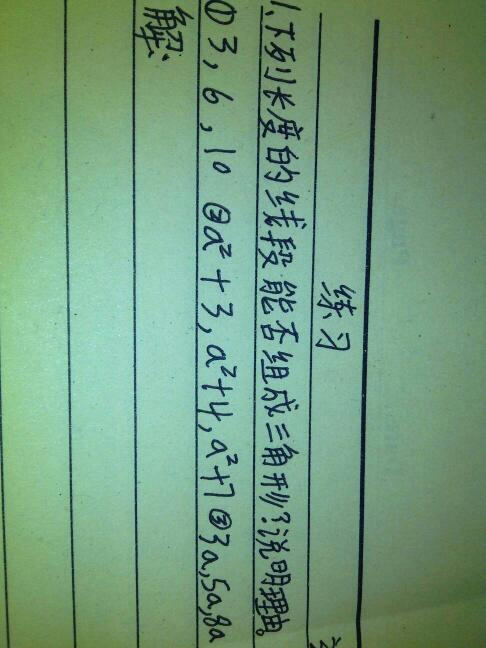 练习
1、下列长度的线段能否组成三角形?说明理由。
①3,6,10 ②a²+3,a²+4,a²+7 ③3a,5a,8a
解: